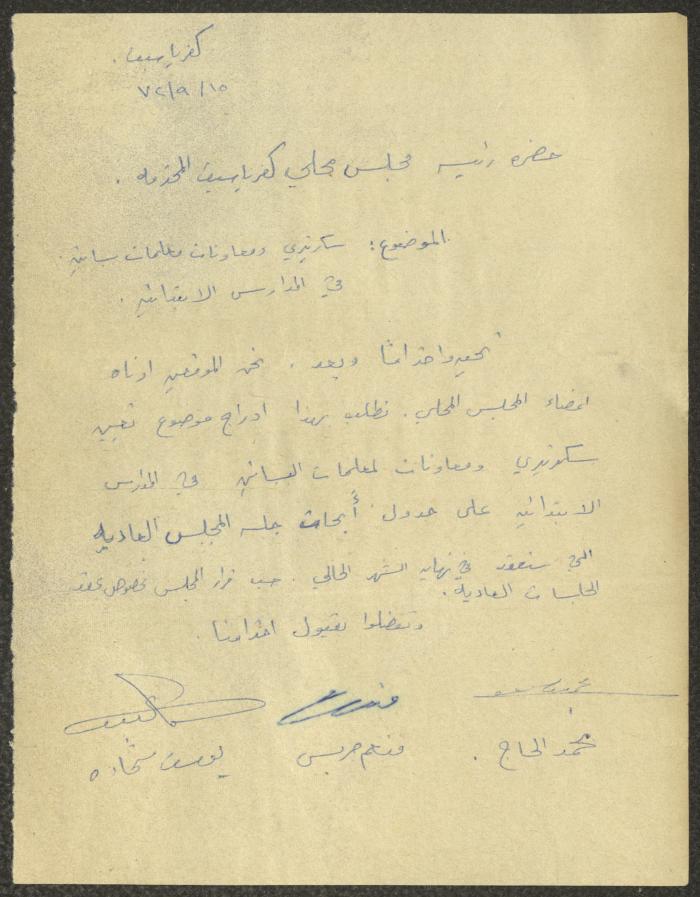 كفرياسيف.
٧٢/٩/١٥
حضرة رئيس مجلس محلي كفرياسيف المحترم.
الموضوع: سكرتيري ومعاونات معلمات بساتين
في المدارس الابتدائيه.
تحيه واحتراما وبعد، نحن الموقعين ادناه
اعضاء المجلس المحلي. نطلب بهذا ادراج موضوع تعيين
سكرتيري ومعاونات لمعلمات البساتين في المدارس
الابتدائيه على جدول أبحاث جلسه المجلس العاديه
التي ستعقد في نهايه الشهر الحالي. حسب قرار المجلس بخصوص عقد
الجلسات العاديه.
وتفضلوا بقبول احترامنا.
محمد الحاج. منعم جرجس يوسف شحاده